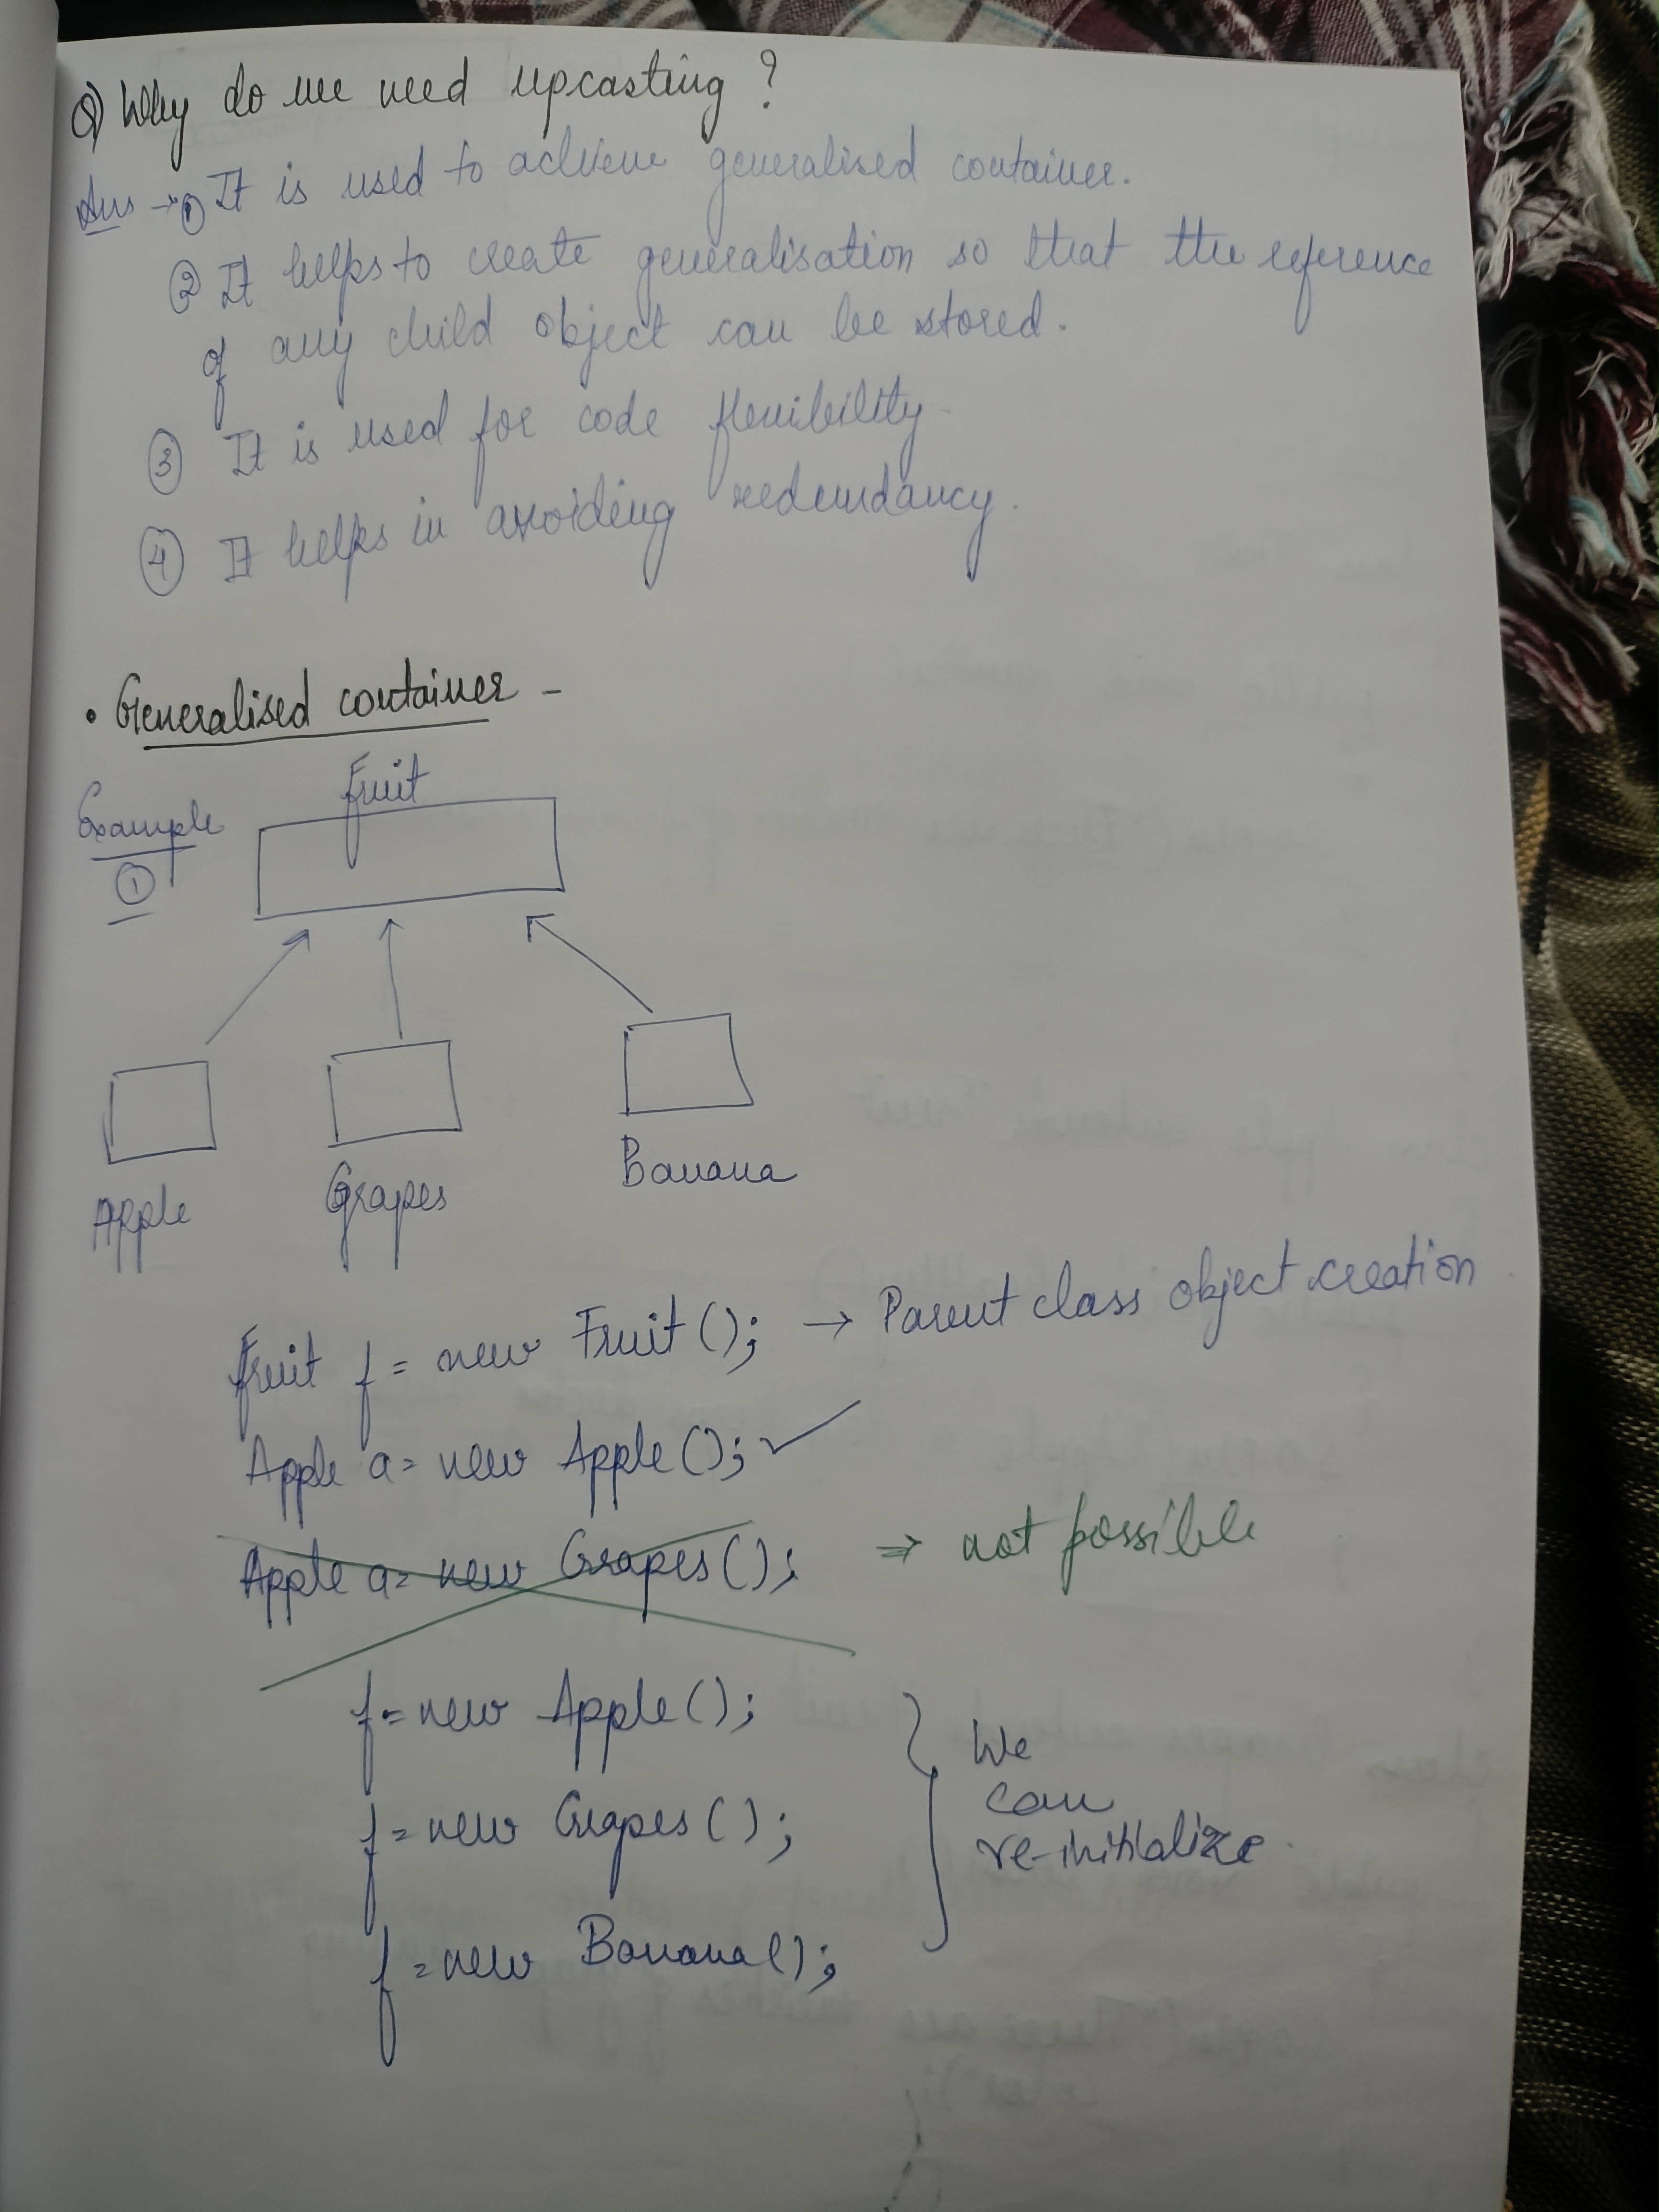 Q) Why do we need upcasting ?
Ans → ① It is used to achieve generalised container.
② It helps to create generalisation so that the reference
of any child object can be stored.
③ It is used for code flexibility.
④ It helps in avoiding redundancy.
• Generalised container -
Example
①
Fruit
Apple
Grapes
Banana
Fruit f = new Fruit(); → Parent class object creation
Apple a = new Apple(); ✓
Apple a = new Grapes(); ⇒ not possible
f = new Apple();
f = new Grapes();
f = new Banana();
We
can
re-initialize.